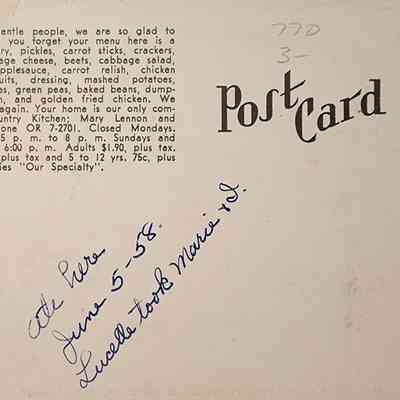 antle people, we are so glad to
you forget your menu here is a
ry, pickles, carrot sticks, crackers,
age cheese, beets, cabbage salad,
pplesauce, carrot relish, chicken
uits, dressing, mashed potatoes,
es, green peas, baked beans, dump-
n, and golden fried chicken. We
again. Your home is our only com-
untry Kitchen; Mary Lennon and
one OR 7-2701. Closed Mondays.
5 p. m. to 8 p. m. Sundays and
6:00 p. m. Adults $1.90, plus tax.
plus tax and 5 to 12 yrs. 75c, plus
ies "Our Specialty".
770
3-
Post Card
ate here
June 5-58.
Lucelle took Marie & I.